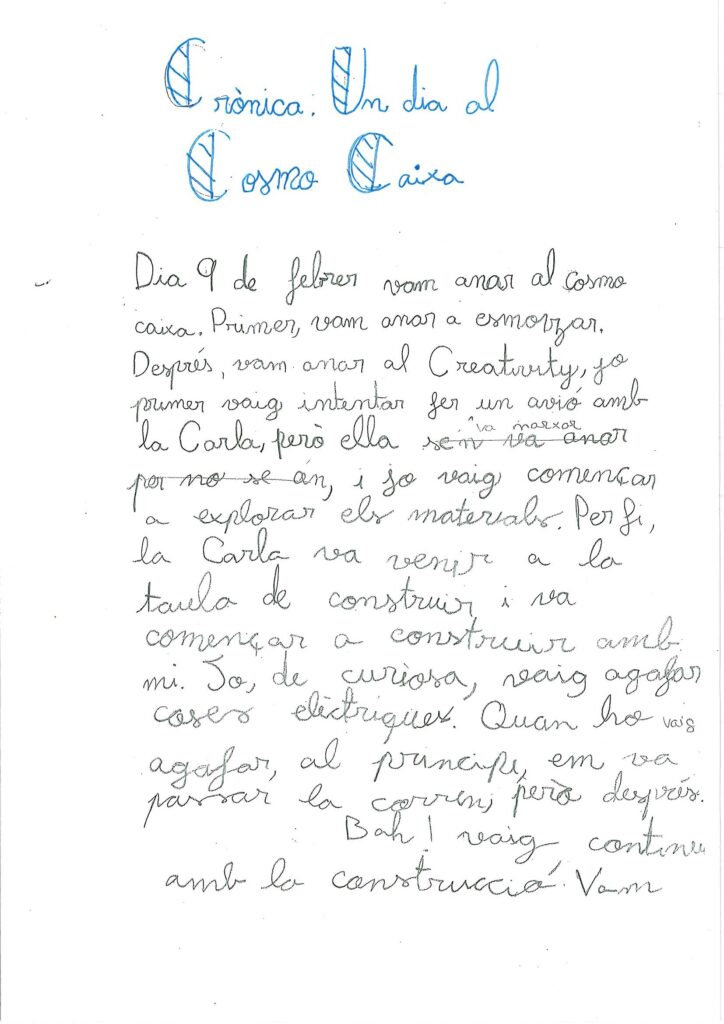 Crònica: Un dia al
Cosmo Caixa
Dia 9 de febrer vam anar al cosmo
caixa. Primer, vam anar a esmorzar.
Després, vam anar al Creativity, jo
primer vaig intentar fer un avió amb
va marxar
la Carla, però ella sen va anar
per no se an, i jo vaig començar
a explorar els materials. Per fi,
la Carla va venir a la
taula de construir i va
començar a construir amb
mi. Jo, de curiosa, vaig agafar
coses elèctriques. Quan ho vaig
agafar, al principi, em va
passar la corren, però després.
Bah! vaig continu
amb la construcció. Vam